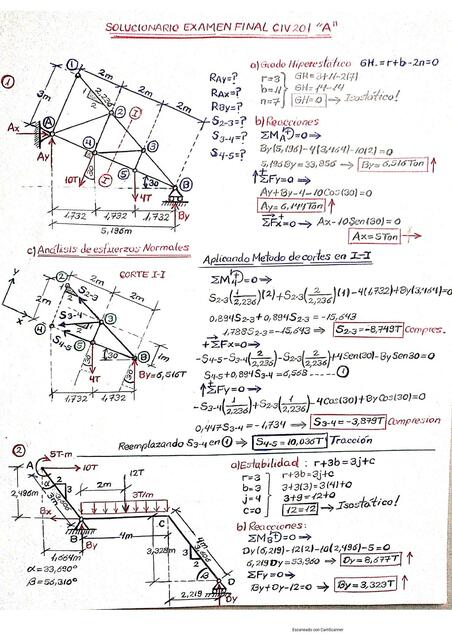 SOLUCIONARIO EXAMEN FINAL CIV201 "A"
①
3m
2m
2m
2m
2,236
1
2
Ax
Ay
10T
4T
30
By
1,732
1,732
1,732
5,196m
RAY=?
RAX=?
RBY=?
S2-3=?
S3-4=?
S4-5=?
a) Grado Hiperestático GH.=r+b-2n=0
r=3
b=11
n=7
GH=3+11-2(7)
GH=14-14
GH=0 → Isostático!
b) Reacciones
ΣMA=0⇒
By(5,196)-4(3,464)-10(2)=0
5,196By=33,856 → By=6,516Ton
ΣFy=0⇒
Ay+By-4-10Cos(30)=0
Ay=6,144Ton
ΣFx=0⇒ Ax-10Sen(30)=0
Ax=5Ton
c) Análisis de esfuerzos Normales
CORTE I-I
Y
X
2m
2m
2m
S2-3
S3-4
S4-5
1m
4T
30
By=6,516T
1,732
1,732
Aplicando Metodo de cortes en I-I
ΣM4=0⇒
S2-3(1/2,236)(2)+S2-3(2/2,236)(1)-4(1,732)+By(3,464)=0
0,894S2-3+0,894S2-3=-15,643
1,788S2-3=-15,643 → S2-3=-8,749T Compres.
+ΣFx=0⇒
-S4-5-S3-4(2/2,236)-S2-3(2/2,236)+4Sen30-BySen30=0
S4-5+0,894S3-4=6,568-----①
ΣFy=0⇒
-S3-4(1/2,236)+S2-3(1/2,236)-4Cos(30)+ByCos(30)=0
0,447S3-4=-1,734 → S3-4=-3,879T Compresion
Reemplazando S3-4 en ① → S4-5=10,036T Tracción
②
5T-m
A
10T
12T
2m
3T/m
2,496m
Bx
B
By
4m
C
3,328m
4m
1,664m
D
Dy
2,219
α=33,690°
β=56,310°
a) Estabilidad: r+3b=3j+c
r=3
b=3
j=4
c=0
r+3b=3j+c
3+3(3)=3(4)+0
3+9=12+0
12=12 → Isostático!
b) Reacciones:
ΣMB=0⇒
Dy(6,219)-12(2)-10(2,496)-5=0
6,219Dy=53,960 → Dy=8,677T
ΣFy=0⇒
By+Dy-12=0 → By=3,323T
Escaneado con CamScanner